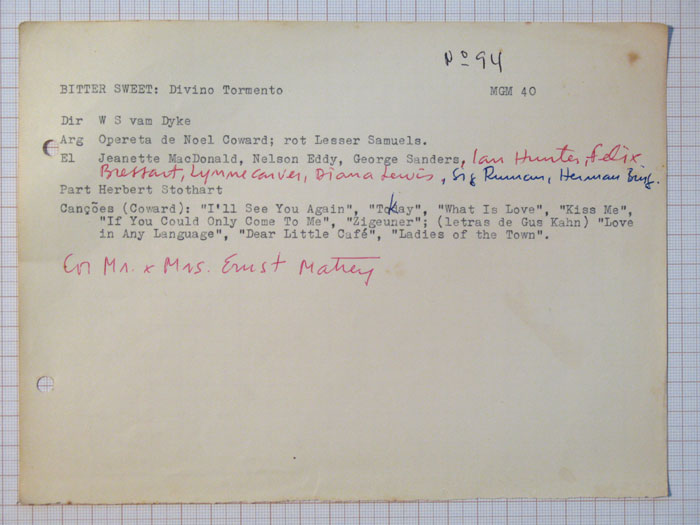 Nº 94
BITTER SWEET: Divino Tormento MGM 40
Dir W S vam Dyke
Arg Opereta de Noel Coward; rot Lesser Samuels.
El Jeanette MacDonald, Nelson Eddy, George Sanders, Ian Hunter, Felix
Bressart, Lynne Carver, Diana Lewis, Sig Ruman, Herman Bing.
Part Herbert Stothart
Canções (Coward): "I'll See You Again", "Tokay", "What Is Love", "Kiss Me",
"If You Could Only Come To Me", "Zigeuner"; (letras de Gus Kahn) "Love
in Any Language", "Dear Little Café", "Ladies of the Town".
Cor Mr. & Mrs. Ernst Matray